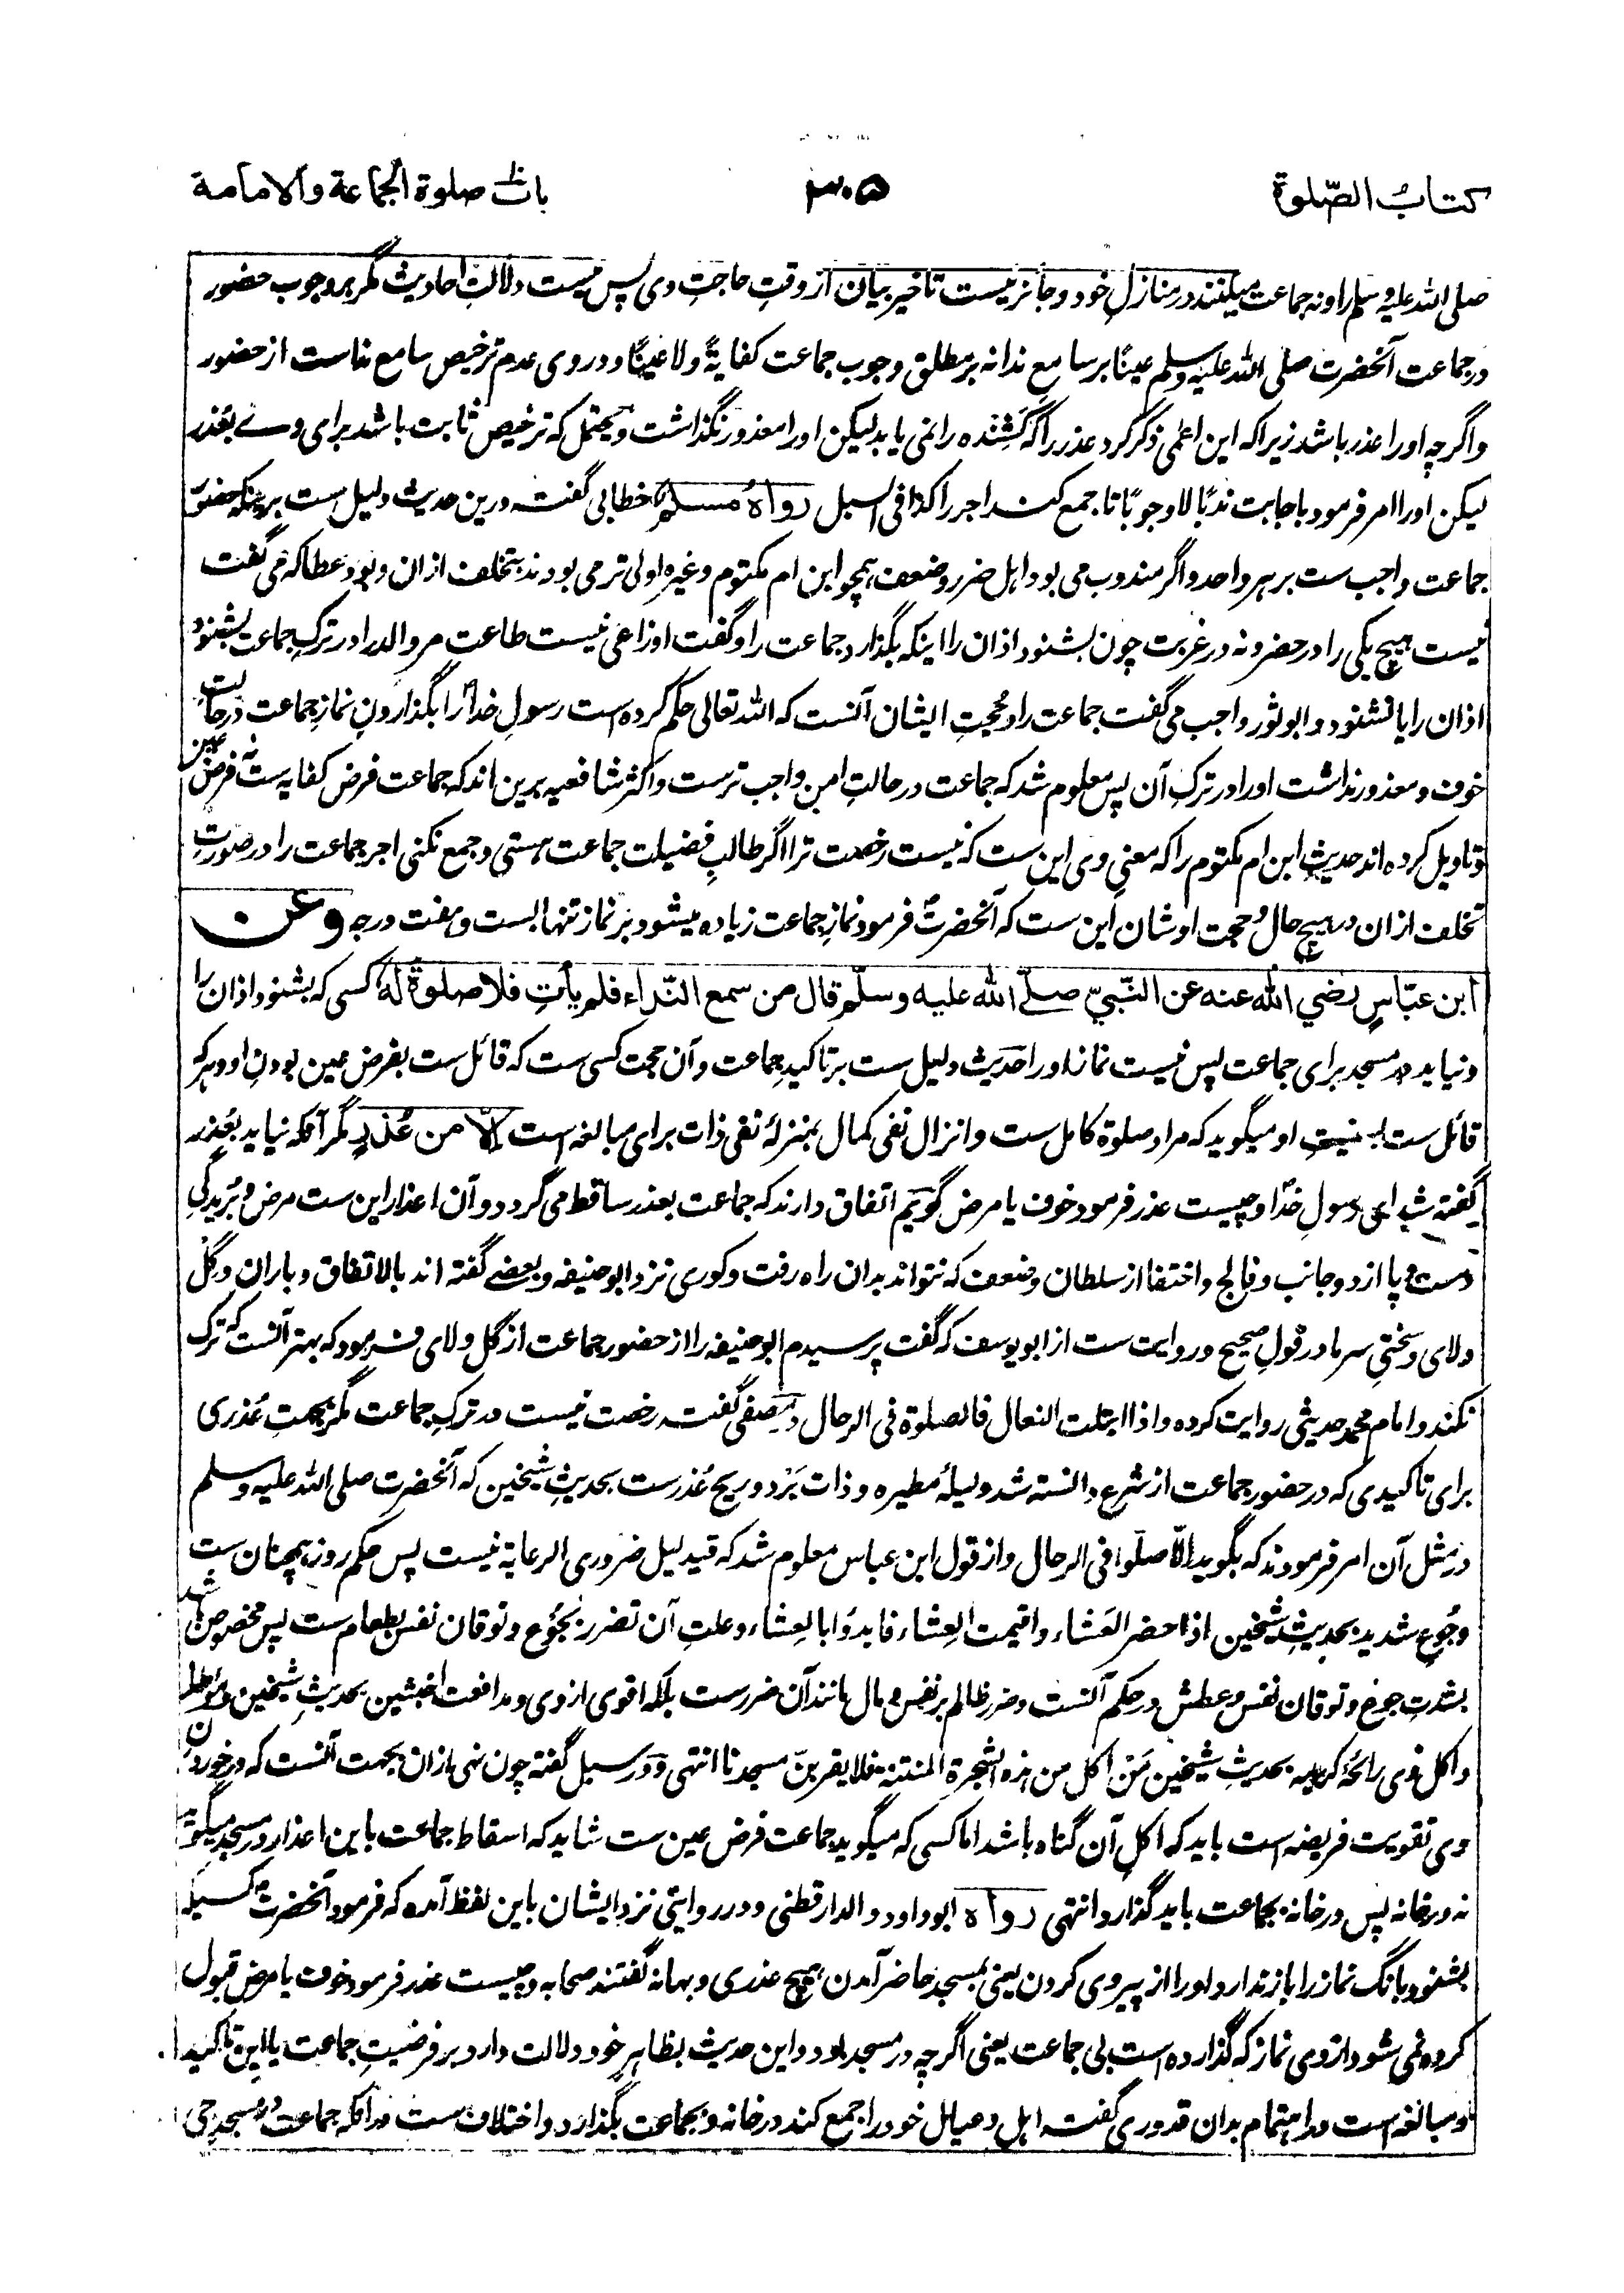 کتاب الصّلوة
۳۰۵
باب صلوة الجماعة والامامة
صلی الله علیه وسلم را و نه جماعت میکنند در منازل خود و جائز نیست تاخیر بیان از وقت حاجت وی پس نیست دلالت احادیث مگر بر وجوب حضور
در جماعت آنحضرت صلی الله علیه وسلم عینًا بر سامع ندا نه بر مطلق وجوب جماعت کفایةً ولا عینًا و در وی عدم ترخیص سامع نداست از حضور
واگرچه او را عذر باشد زیرا که این اعمی ذکر کرد عذر را که کَشَنده را نمی یابد لیکن او را معذور نگذاشت و یحتمل که ترخیص ثابت باشد برای وے بعُذر
لیکن او را امر فرمود باجابت ندبًا لا وجوبًا تا جمع کند اجر را کذا فی السبل رواه مسلم خطابی گفت درین حدیث دلیل ست برینکه حضور
جماعت واجب ست بر هر واحد و اگر مندوب می بود اهل ضرر وضعف همچو ابن ام مکتوم وغیره اولی تر می بودند بتخلف ازان و بود عطا که می گفت
نیست هیچ یکی را در حضر و نه در غربت چون بشنود اذان را اینکه بگذارد جماعت را و گفت اوزاعی نیست طاعت مر والد را در ترک جماعت بشنود
اذان را یا نشنود و ابو ثور واجب می گفت جماعت را و حجت ایشان آنست که الله تعالی حکم کرده است رسول خدا را بگذاردن نماز جماعت در حالت
خوف و معذور نداشت او را در ترک آن پس معلوم شد که جماعت در حالت امن واجب ترست و اکثر شافعیه برین اند که جماعت فرض کفایه ست نه فرض عین
و تاویل کرده اند حدیث ابن ام مکتوم را که معنی وی این ست که نیست رخصت ترا اگر طالب فضیلت جماعت هستی و جمع نکنی اجر جماعت را در صورت
تخلف ازان در هیچ حال و حجت اوشان این ست که آنحضرت فرمود نماز جماعت زیاده میشود بر نماز تنها بست و هفت درجه وعن
ابن عبّاس رضي الله عنه عن النّبيّ صلی الله علیه وسلّم قال من سمع النّداء فلم یأت فلا صلوة له کسی که بشنود اذان را
و نیاید در مسجد برای جماعت پس نیست نماز او را حدیث دلیل ست بر تاکید جماعت و آن حجت کسی ست که قائل ست بفرض عین بودن او و هر که
قائل ست بسنیت او میگوید که مراد صلوة کامل ست و انزال نفی کمال بمنزلهٔ نفی ذات برای مبالغه است الا من عُذرٍ مگر آنکه نیاید بعُذر
گفته شد ای رسول خدا و چیست عذر فرمود خوف یا مرض گویم اتفاق دارند که جماعت بعذر ساقط می گردد و آن اعذار این ست مرض و بُریدگی
دست و پا از دو جانب و فالج و اختفا از سلطان و ضعف که نتواند بدان راه رفت و کوری نزد ابو حنیفه و بعضے گفته اند بالاتفاق و باران و گل
ولای و سختی سرما در قول صحیح و روایت ست از ابو یوسف که گفت پرسیدم ابو حنیفه را از حضور جماعت از گل ولای فرمود که بهتر آنست که ترک
نکنند و امام محمد حدیثی روایت کرده واذا ابتلت النعال فالصلوة فی الرحال در مصفی گفته رخصت نیست در ترک جماعت مگر بجهت عُذری
برای تاکیدی که در حضور جماعت از شرع دانسته شد ولیلهٔ مطیره و ذات بَرد و ریح عُذرست بحدیث شیخین که آنحضرت صلی الله علیه وسلم
در مثل آن امر فرمودند که بگوید الا صلّوا فی الرحال و از قول ابن عباس معلوم شد که قید لیل ضروری الرعایة نیست پس حکم روز همچنان ست
وجُوع شدید بحدیث شیخین اذا حضر العَشاء واقیمت العِشاء فابدؤا بالعَشاء و علت آن تضرر بجُوع و توقان نفس بطعام ست پس مخصوص شد
بشدت جوع و توقان نفس و عطش در حکم آنست و ضرر ظالم بر نفس و مال مانند آن ضررست بلکه اقوی از وی و مدافعت اخبثین بحدیث شیخین و موطا
و اکل ذوی رائحهٔ کریهه بحدیث شیخین مَن اکل من هذه الشجرة المنتنة فلا یقربنّ مسجدنا انتهی و در سبل گفته چون نهی ازان بجهت آنست که در خوردن
وی تقویت فریضه است باید که اکل آن گناه باشد اما کسی که میگوید جماعت فرض عین ست شاید که اسقاط جماعت باین اعذار در مسجد میگوید
نه در خانه پس در خانه بجماعت باید گذارد انتهی رواه ابو داود والدارقطنی و در روایتی نزد ایشان باین لفظ آمده که فرمود آنحضرت کسیکه
بشنود بانگ نماز را باز ندارد او را از پیروی کردن یعنی بمسجد حاضر آمدن هیچ عذری و بهانه گفتند صحابه و چیست عذر فرمود خوف یا مرض قبول
کرده نمی شود از وی نماز که گذارده است بی جماعت یعنی اگرچه در مسجد بود و این حدیث بظاهر خود دلالت دارد بر فرضیت جماعت یا این تاکید
و مبالغه است در اهتمام بدان قدوری گفت اهل و عیال خود را جمع کند در خانه و بجماعت بگذارد و اختلاف ست در آنکه جماعت در مسجد حی